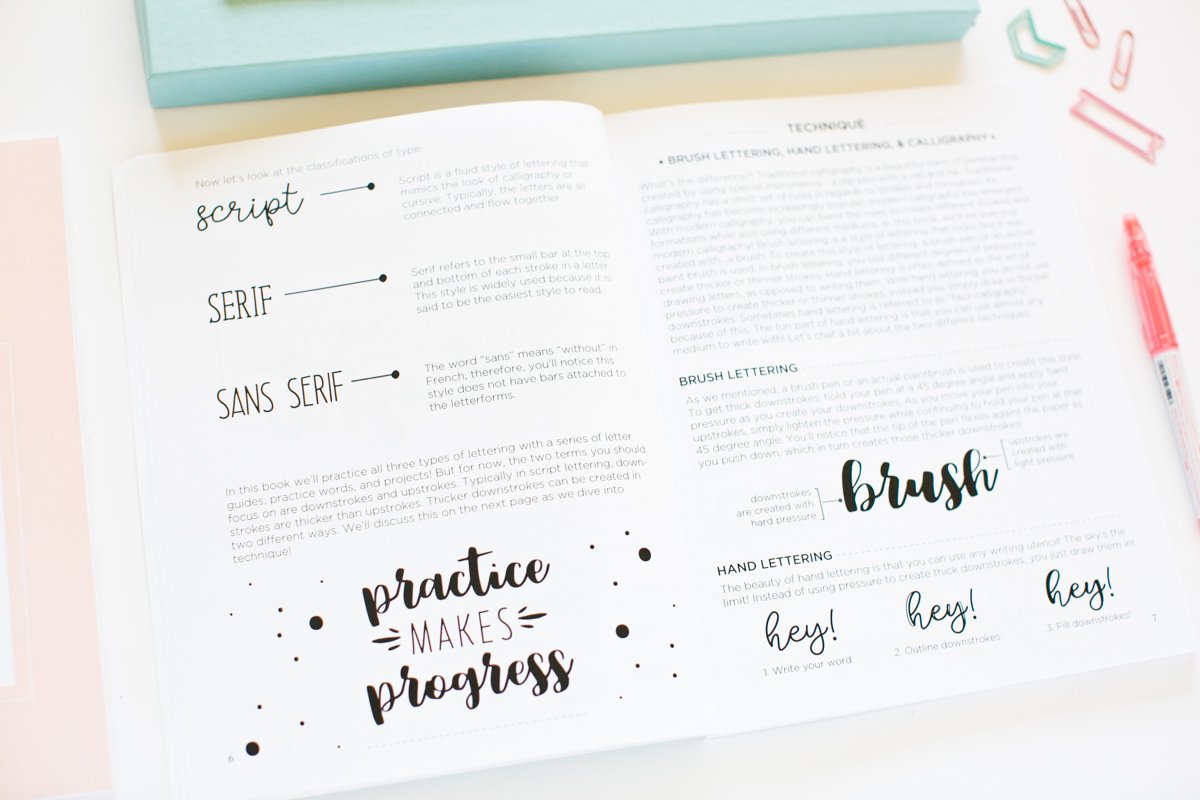 Now let's look at the classifications of type.
script
Script is a fluid style of lettering that
mimics the look of calligraphy or
cursive. Typically, the letters are as
connected and flow together.
SERIF
Serif refers to the small bar at the top
and bottom of each stroke in a letter.
This style is widely used because it is
said to be the easiest style to read.
SANS SERIF
The word "sans" means "without" in
French, therefore, you'll notice this
style does not have bars attached to
the letterforms.
In this book we'll practice all three types of lettering with a series of letter
guides, practice words, and projects! But for now, the two terms you should
focus on are downstrokes and upstrokes. Typically in script lettering, down-
strokes are thicker than upstrokes. Thicker downstrokes can be created in
two different ways. We'll discuss this on the next page as we dive into
technique!
practice
MAKES
progress
6
TECHNIQUE
• BRUSH LETTERING, HAND LETTERING, & CALLIGRAPHY •
What's the difference?! Traditional calligraphy is a beautiful form of penmanship
created by using special instruments - a dip pen with a nib and ink. Traditional
calligraphy has a strict set of rules in regards to strokes and formation. As
calligraphy has become increasingly popular, modern calligraphy has emerged.
With modern calligraphy, you can bend the rules to create new letter strokes and
formations while also using different mediums.
modern calligraphy! Brush lettering is a style of lettering that looks like it was
created with... a brush! To create this style of lettering, a brush pen or an actual
paint brush is used. In brush lettering, you use different degrees of pressure to
create thicker or thinner strokes. Hand lettering is often defined as the art of
drawing letters, as opposed to writing them. With hand lettering, you do not use
pressure to create thicker or thinner strokes, instead you simply draw in thicker
downstrokes. Sometimes hand lettering is referred to as "faux calligraphy"
because of this. The fun part of hand lettering is that you can use almost any
medium to write with! Let's chat a bit about the two different techniques.
BRUSH LETTERING
As we mentioned, a brush pen or an actual paintbrush is used to create this style.
To get thick downstrokes, hold your pen at a 45 degree angle and apply hard
pressure as you create your downstrokes. As you move your pen into your
upstrokes, simply lighten the pressure while continuing to hold your pen at that
45 degree angle. You'll notice that the tip of the pen flexes against the paper as
you push down, which in turn creates those thicker downstrokes!
downstrokes
are created with
hard pressure
brush
upstrokes are
created with
light pressure
HAND LETTERING
The beauty of hand lettering is that you can use any writing utencil! The sky's the
limit! Instead of using pressure to create thick downstrokes, you just draw them in!
hey! hey! hey!
1. Write your word. 2. Outline downstrokes. 3. Fill downstrokes!
7